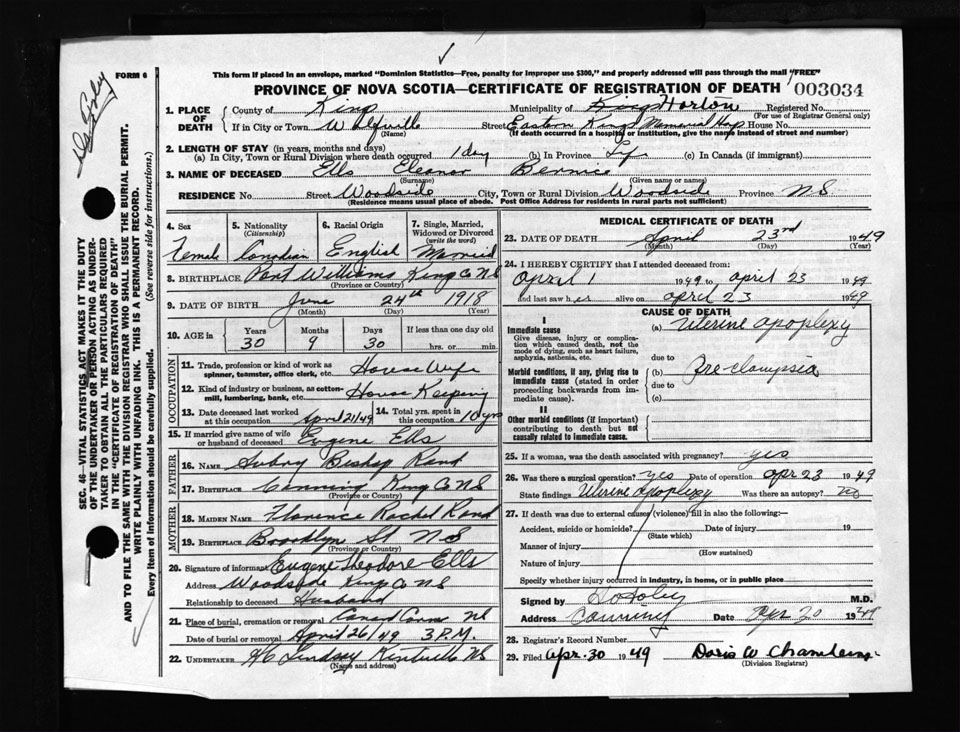 This form if placed in an envelope, marked "Dominion Statistics—Free, penalty for improper use $300," and properly addressed will pass through the mail "FREE"
FORM 6
PROVINCE OF NOVA SCOTIA—CERTIFICATE OF REGISTRATION OF DEATH 003034
1. PLACE OF DEATH County of Kings Municipality of Kings Horton Registered No.
(For use of Registrar General only)
If in City or Town Wolfville Street Eastern Kings Memorial Hosp House No.
(Name) (If death occurred in a hospital or institution, give the name instead of street and number)
2. LENGTH OF STAY (in years, months and days)
(a) In City, Town or Rural Division where death occurred 1 day (b) In Province Life (c) In Canada (if immigrant)
3. NAME OF DECEASED Ells Elenor Bernice
(Surname) (Given name or names)
RESIDENCE No. Street Woodside City, Town or Rural Division Woodside Province NS
(Residence means usual place of abode. Post Office Address for residents in rural parts not sufficient)
4. Sex 5. Nationality (Citizenship) 6. Racial Origin 7. Single, Married, Widowed or Divorced (write the word)
Female Canadian English Married
8. BIRTHPLACE Port Williams Kings Co NS
(Province or Country)
9. DATE OF BIRTH June 24th 1918
(Month) (Day) (Year)
10. AGE in Years Months Days If less than one day old
30 9 30 hrs. or min.
OCCUPATION
11. Trade, profession or kind of work as spinner, teamster, office clerk, etc. House Wife
12. Kind of industry or business, as cotton-mill, lumbering, bank, etc. House Keeping
13. Date deceased last worked at this occupation April 21/49 14. Total yrs. spent in this occupation 10 yrs
15. If married give name of wife or husband of deceased Eugene Ells
FATHER
16. NAME Aubry Bishop Rand
17. BIRTHPLACE Canning Kings Co NS
(Province or Country)
MOTHER
18. MAIDEN NAME Florence Rachel Rand
19. BIRTHPLACE Brooklyn St NS
(Province or Country)
20. Signature of informant Eugene Theodore Ells
Address Woodside Kings Co NS
Relationship to deceased Husband
21. Place of burial, cremation or removal Canard
Date of burial or removal April 26/49 3 P.M.
22. UNDERTAKER Lindsay Kentville NS
(Name and address)
MEDICAL CERTIFICATE OF DEATH
23. DATE OF DEATH April 23rd 1949
(Month) (Day) (Year)
24. I HEREBY CERTIFY that I attended deceased from:
april 1 1949 to april 23 1949
and last saw her alive on april 23 1949
CAUSE OF DEATH
I
Immediate cause (a) Uterine apoplexy
Give disease, injury or complication which caused death, not the mode of dying, such as heart failure, asphyxia, asthenia, etc.
due to
Morbid conditions, if any, giving rise to immediate cause (stated in order proceeding backwards from immediate cause).
(b) Pre-clampsia
due to
(c)
II
Other morbid conditions (if important) contributing to death but not causally related to immediate cause.
25. If a woman, was the death associated with pregnancy? yes
26. Was there a surgical operation? yes Date of operation apr 23 1949
State findings Uterine apoplexy Was there an autopsy? no
27. If death was due to external causes (violence) fill in also the following:—
Accident, suicide or homicide? Date of injury 19
(State which)
Manner of injury
(How sustained)
Nature of injury
Specify whether injury occurred in industry, in home, or in public place
Signed by M.D.
Address Canning Date Apr 20 1949
28. Registrar's Record Number
29. Filed apr. 30 1949 Doris W Chambers
(Division Registrar)
SEC. 46—VITAL STATISTICS ACT MAKES IT THE DUTY
OF THE UNDERTAKER OR PERSON ACTING AS UNDER-
TAKER TO OBTAIN ALL THE PARTICULARS REQUIRED
IN THE "CERTIFICATE OF REGISTRATION OF DEATH"
AND TO FILE THE SAME WITH THE DIVISION REGISTRAR WHO SHALL ISSUE THE BURIAL PERMIT.
WRITE PLAINLY WITH UNFADING INK. THIS IS A PERMANENT RECORD.
Every item of Information should be carefully supplied. (See reverse side for instructions.)